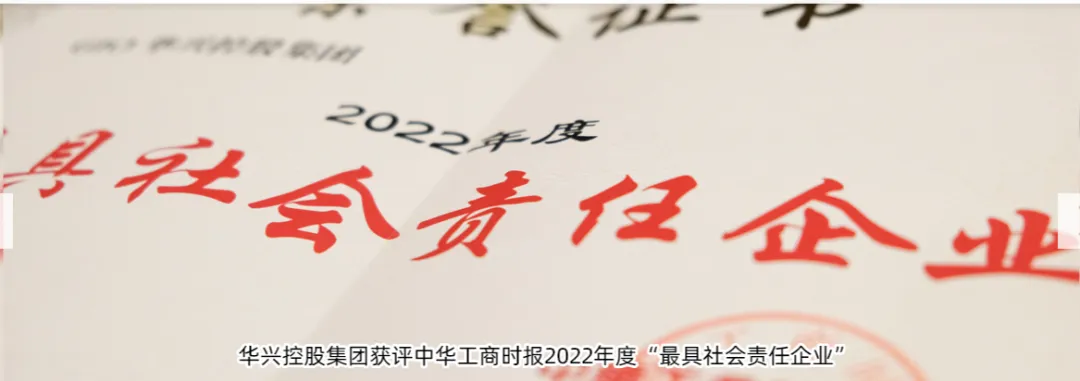 荣誉证书
华兴控股集团
2022年度
具社会责任企业
华兴控股集团获评中华工商时报2022年度“最具社会责任企业”